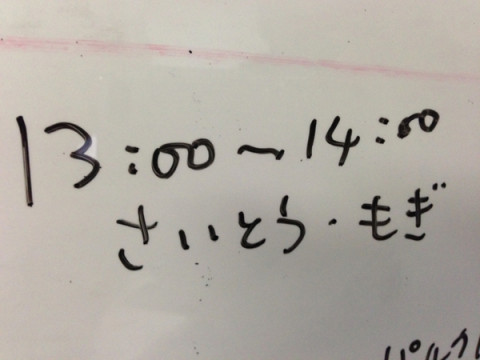 13:00~14:00
さいとう・もぎ